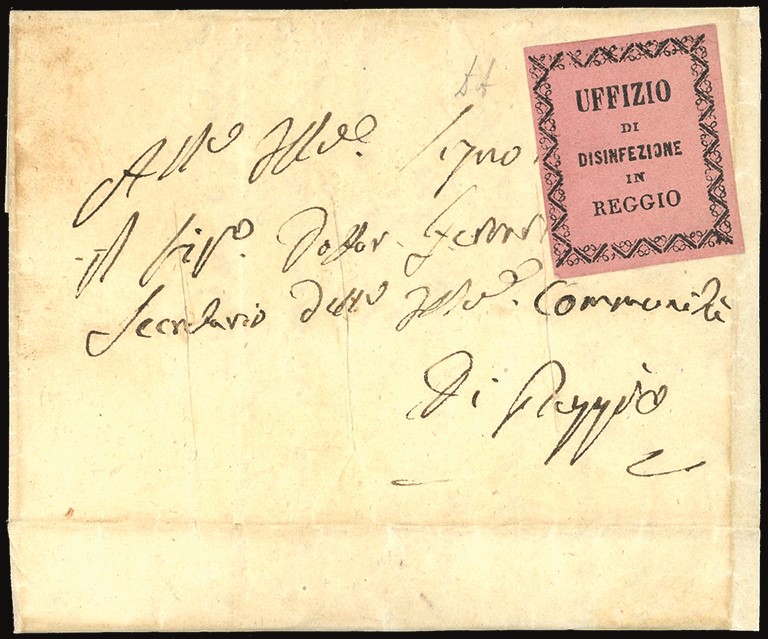 UFFIZIO
DI
DISINFEZIONE
IN
REGGIO
All'o Ill'o. Signo
Il Sig.o Dottor Ferrar
Secretario dell'o Ill'o. Communità
Di Reggio